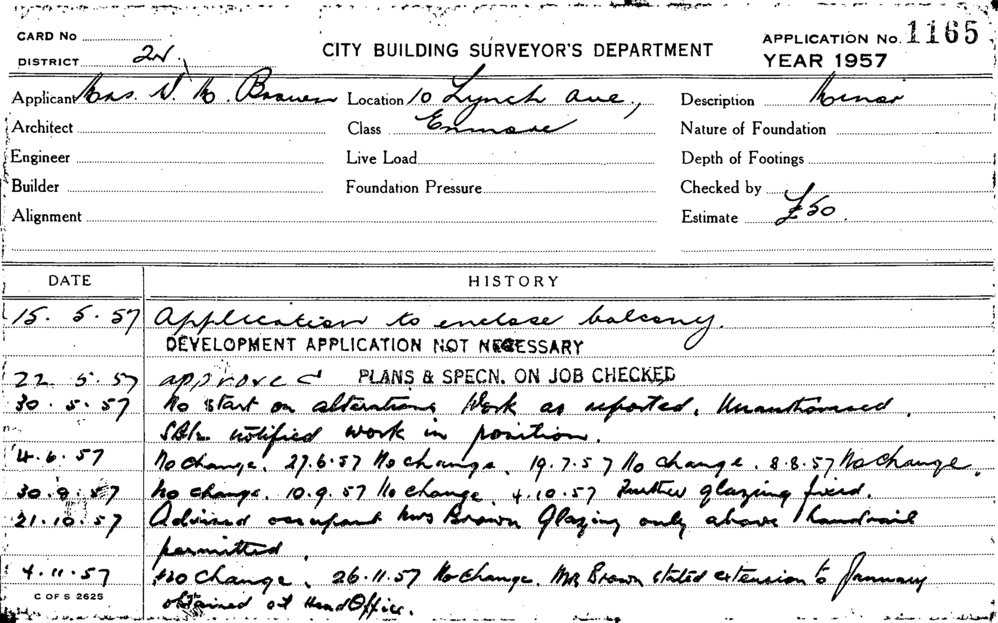 CARD No
APPLICATION No. 1165
CITY BUILDING SURVEYOR'S DEPARTMENT
DISTRICT 2N.
YEAR 1957
Applicant Mrs. N. M. Brown Location 10 Lynch Ave., Description Minor
Architect Class Enmore Nature of Foundation
Engineer Live Load Depth of Footings
Builder Foundation Pressure Checked by
Alignment Estimate £50.
DATE HISTORY
15. 5. 57 Application to enclose balcony.
DEVELOPMENT APPLICATION NOT NECESSARY
22. 5. 57 approved PLANS & SPECN. ON JOB CHECKED
30. 5. 57 No start on alterations Work as reported. Unauthorised.
notified work in position.
4. 6. 57 No change. 27.6.57 No change. 19.7.57 No change. 8.8.57 No change.
30. 8. 57 No change. 10.9.57 No change. 4.10.57 Further glazing fixed.
21. 10. 57 Advised occupant Mrs Brown Glazing only above handrail
permitted.
4. 11. 57 No change. 26.11.57 No change. Mr Brown stated extension to January
obtained at Head Office.
C OF S 2625